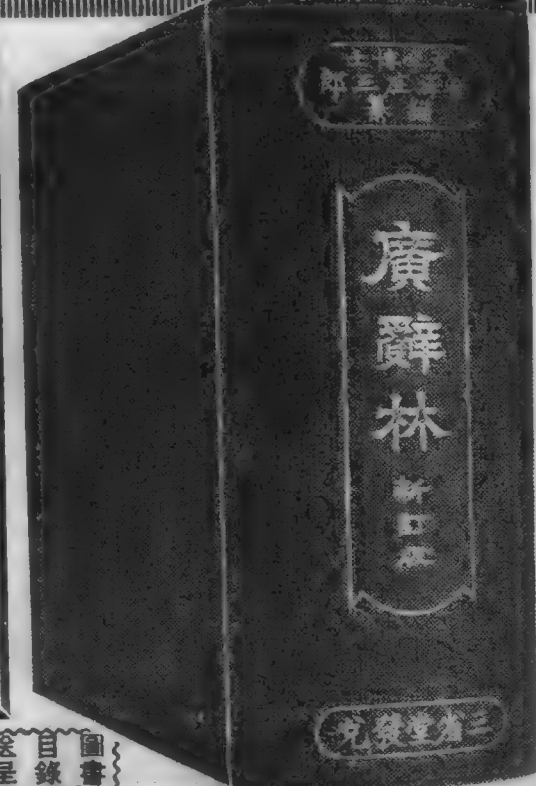 廣辭林
新訂版
三省堂發兌
圖書
目錄